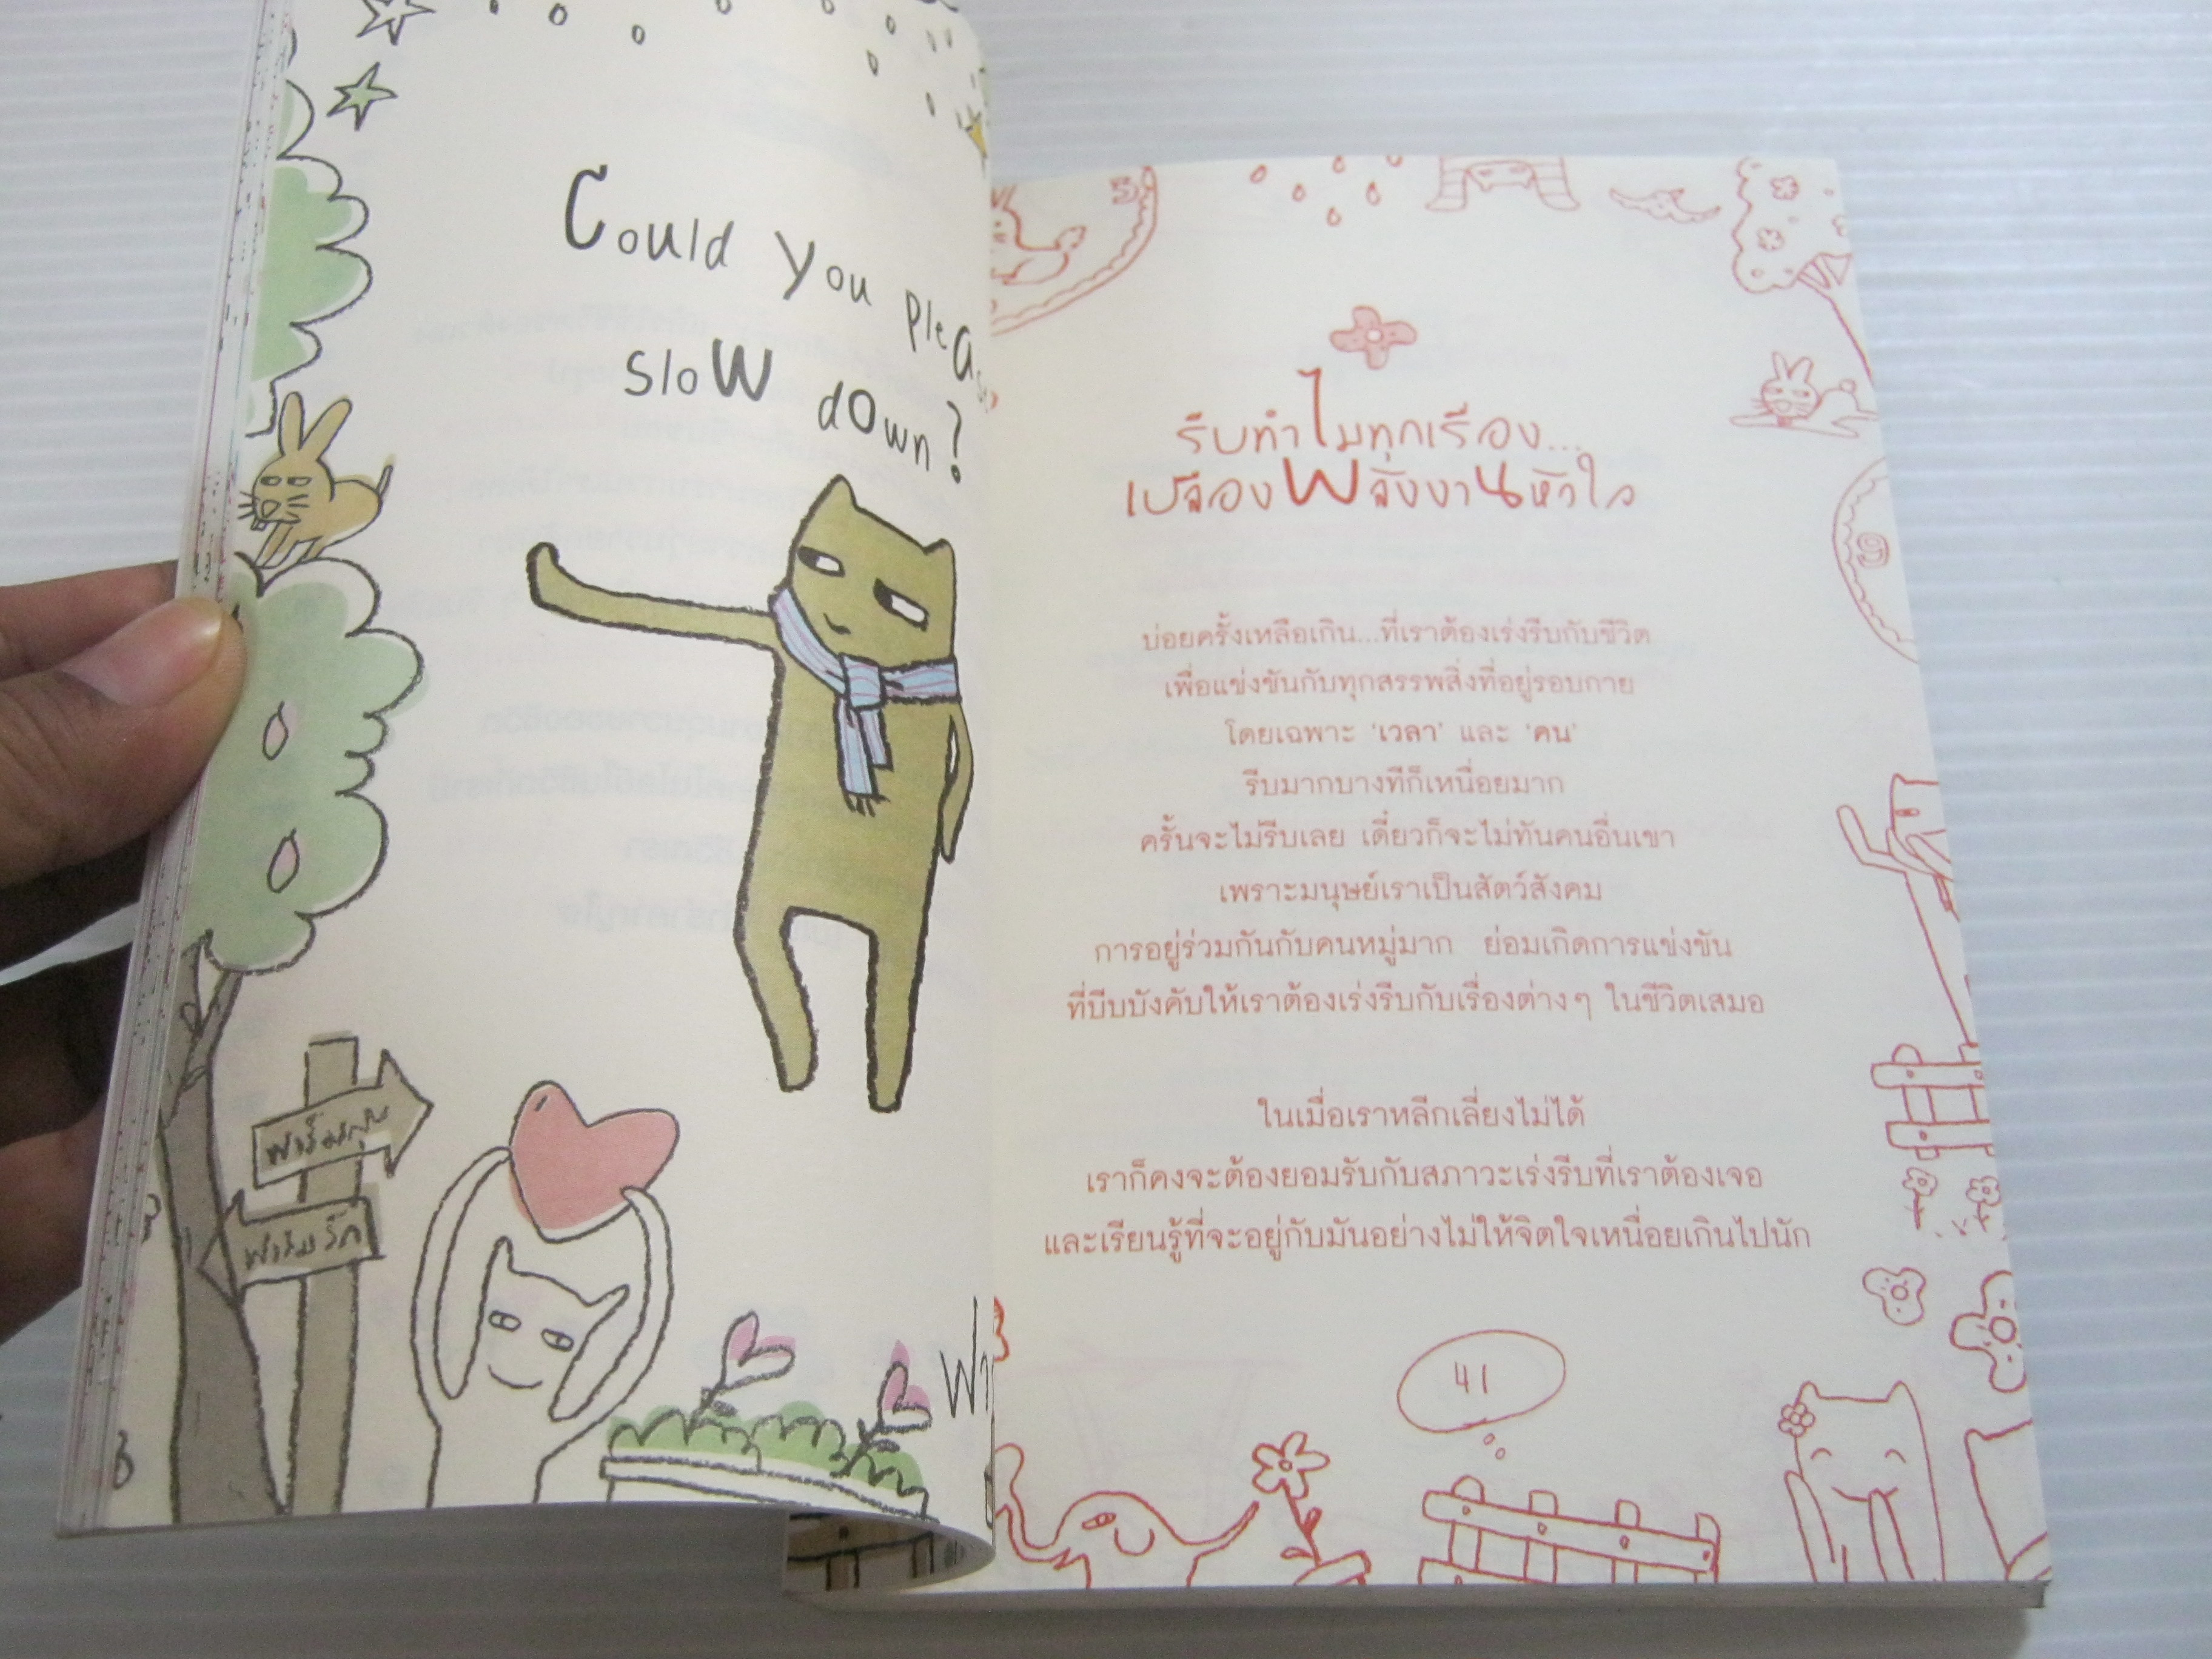 Could you please
slow down?
ฟาร์มรัก
รีบทำไมทุกเรื่อง...
เปลืองพลังงานหัวใจ
บ่อยครั้งเหลือเกิน...ที่เราต้องเร่งรีบกับชีวิต
เพื่อแข่งขันกับทุกสรรพสิ่งที่อยู่รอบกาย
โดยเฉพาะ 'เวลา' และ 'คน'
รีบมากบางทีก็เหนื่อยมาก
ครั้นจะไม่รีบเลย เดี๋ยวก็จะไม่ทันคนอื่นเขา
เพราะมนุษย์เราเป็นสัตว์สังคม
การอยู่ร่วมกันกับคนหมู่มาก ย่อมเกิดการแข่งขัน
ที่บีบบังคับให้เราต้องเร่งรีบกับเรื่องต่างๆ ในชีวิตเสมอ
ในเมื่อเราหลีกเลี่ยงไม่ได้
เราก็คงจะต้องยอมรับกับสภาวะเร่งรีบที่เราต้องเจอ
และเรียนรู้ที่จะอยู่กับมันอย่างไม่ให้จิตใจเหนื่อยเกินไปนัก
41